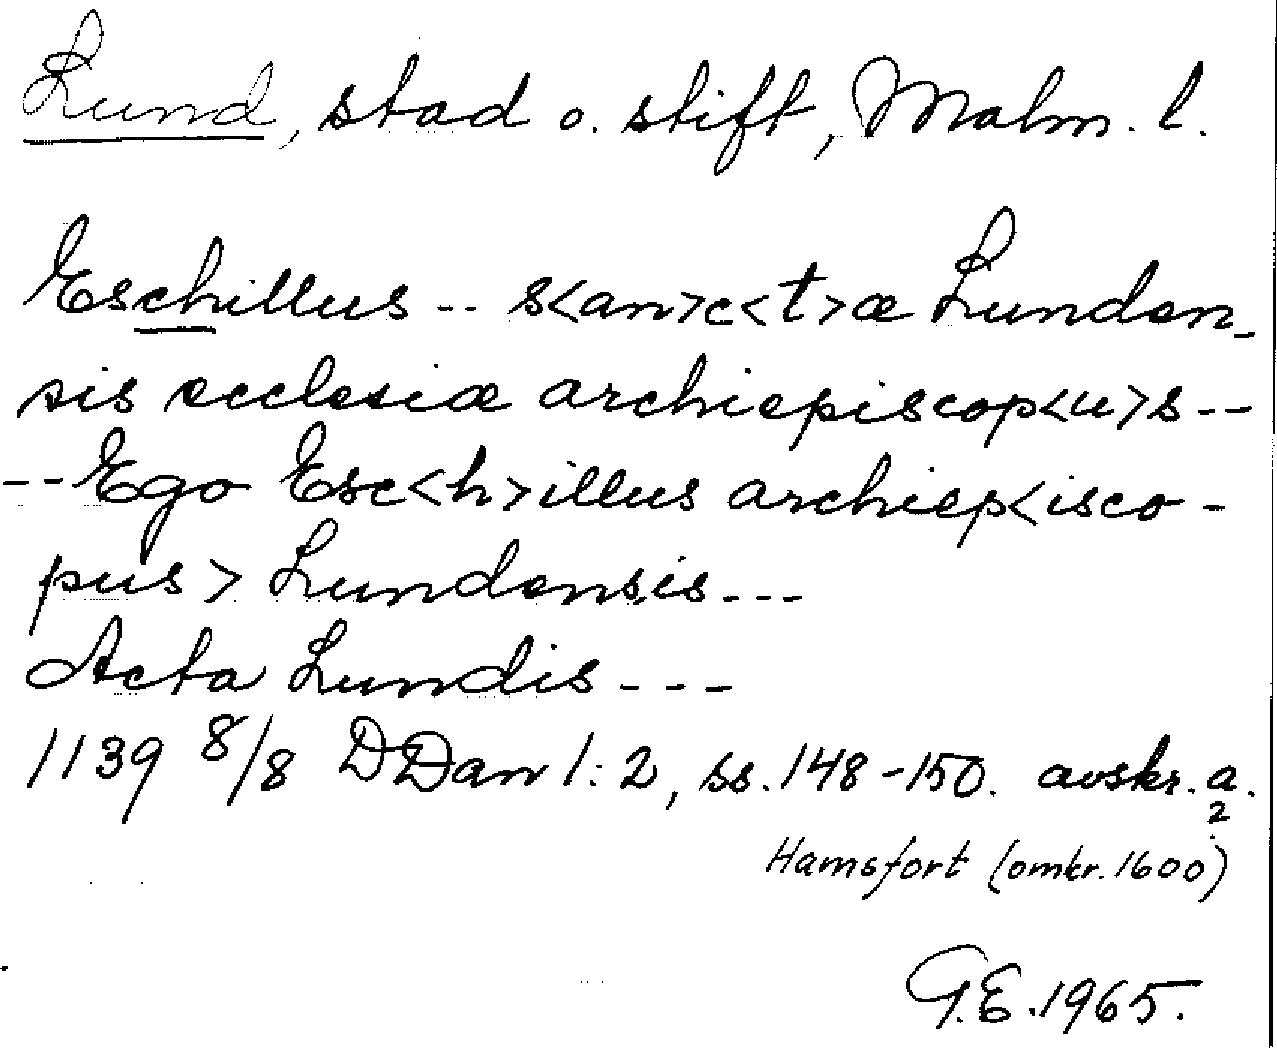 Lund, stad o. stift, Malm. l.
Eschillus -- s<an>c<t>æ Lunden-
sis ecclesiæ archiepiscop<u>s --
-- Ego Esc<h>illus archiep<isco-
pus> Lundensis ---
Acta Lundis ---
1139 8/8 DDan 1:2, ss. 148-150. avskr. a.
2
Hamsfort (omkr. 1600)
G.E. 1965.